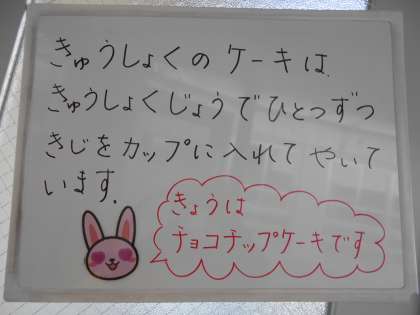 きゅうしょくのケーキは
きゅうしょくじょうでひとつずつ
きじをカップに入れてやいて
います.
きょうは
チョコチップケーキです